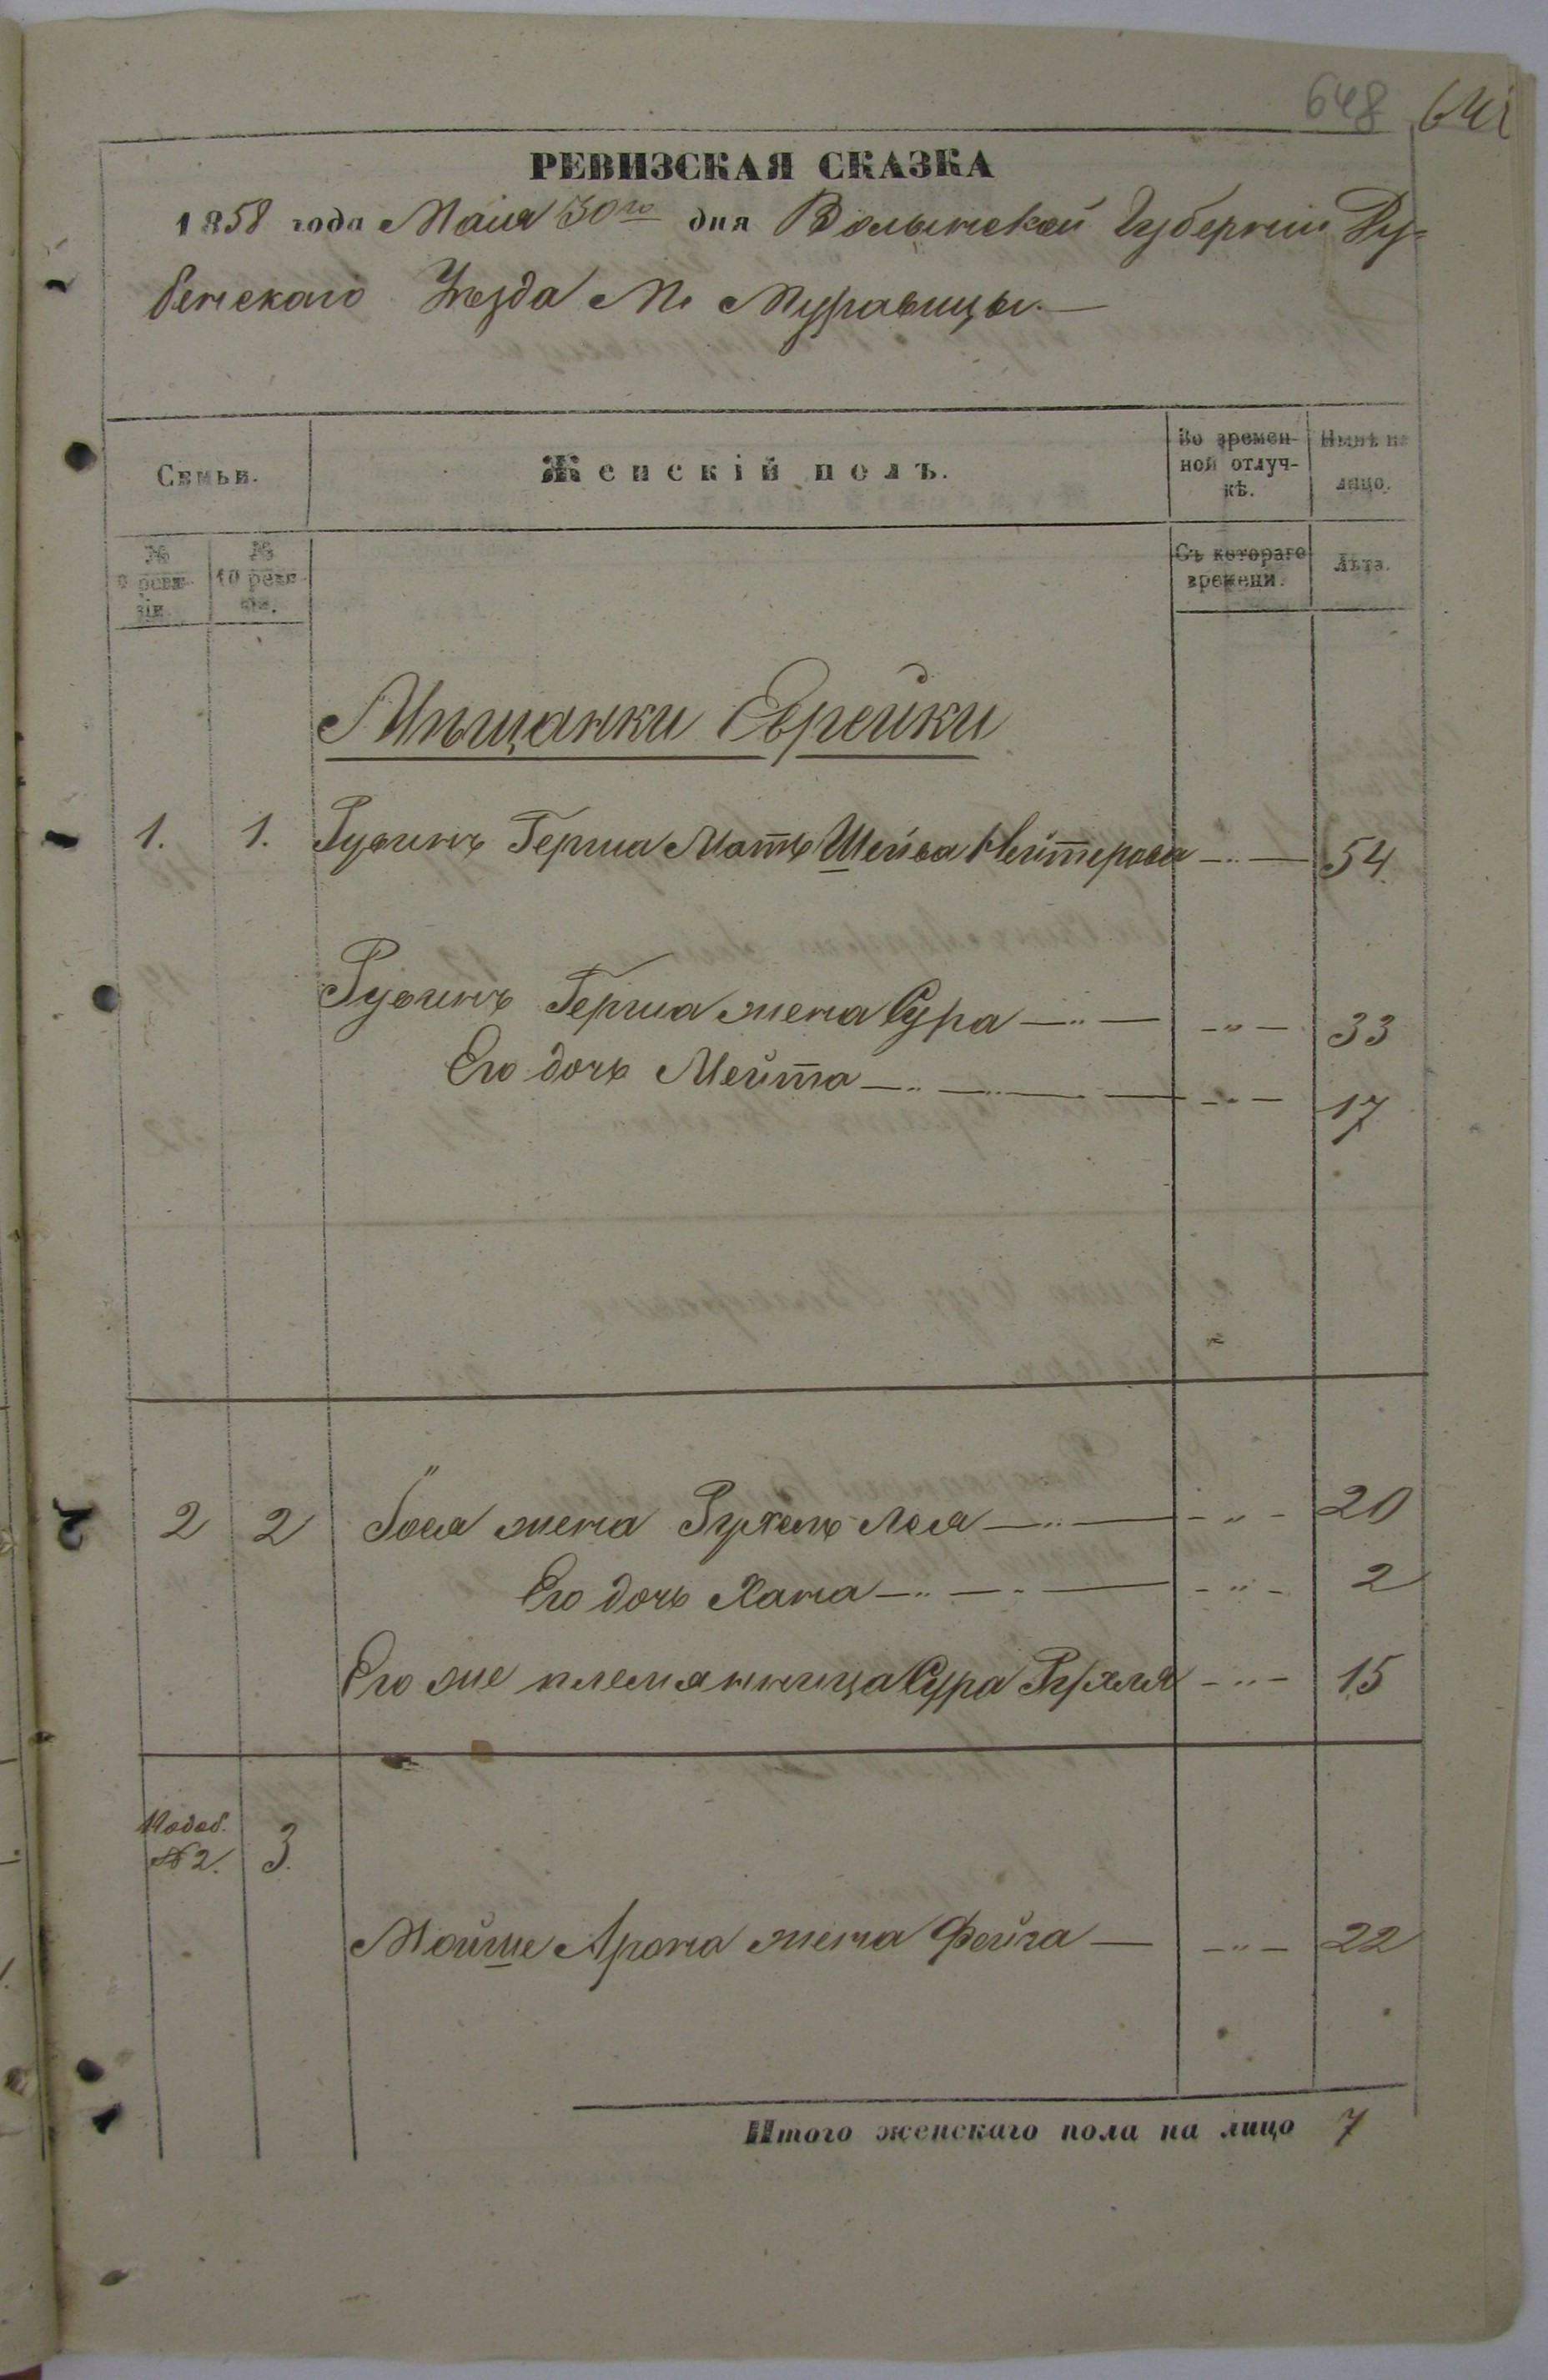 648 641
РЕВИЗСКАЯ СКАЗКА
1858 года Маія 30го дня Волынской Губерніи Ду-
бенскаго Уѣзда М. Муравицы.—
Семьи.
Женскій полъ.
Во времен-
ной отлуч-
кѣ.
Нынѣ на
лицо.
№
9 реви-
зіи.
№
10 реви-
зіи.
Съ котораго
времени.
Лѣта.
Мѣщанки Еврейки
1. 1. Рувинъ Герша Мать Шейва Нейтерова —"— 54.
Рувинъ Герша жена Сура —"— —"— 33
Его дочь Мейта —"— —"— 17
2 2 Іося жена Рухель Лея —"— —"— 20
Его дочь Хана —"— —"— 2
Его же племянница Сура Рухля —"— 15
Подоб.
№ 2. 3.
Мойше Арона жена Фейга — —"— 22
Итого женскаго пола на лицо 7